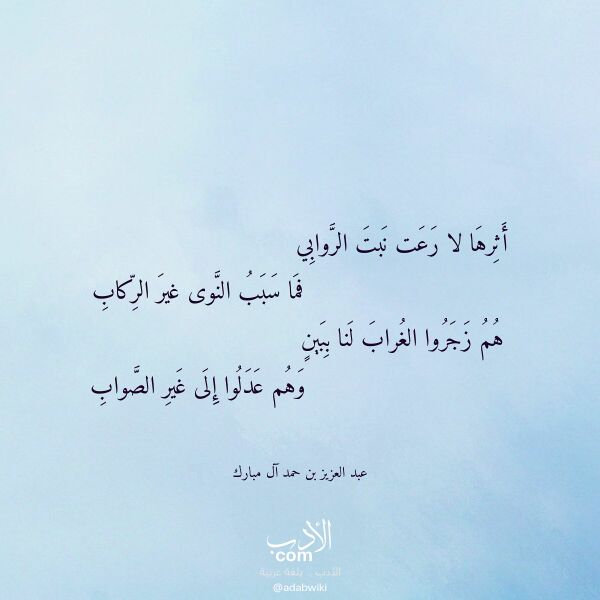 أَثِرهَا لا رَعَت نَبتَ الرَّوابِي
فمَا سَبَبُ النَّوى غيرَ الرِّكابِ
هُمُ زَجَرُوا الغُرابَ لَنا بِبَينٍ
وَهُم عَدَلُوا إِلَى غَيرِ الصَّوابِ
عبد العزيز بن حمد آل مبارك
الأدب
com
الأدب .. بلغة عربية
@adabwiki